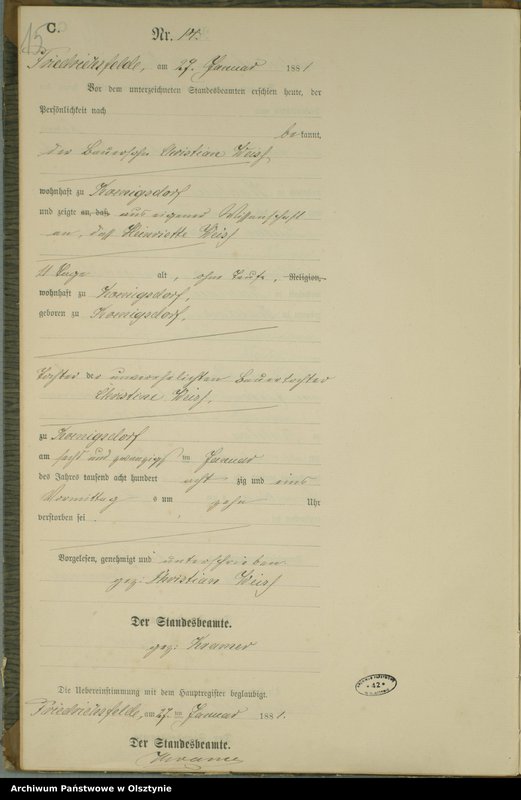 C.
15
Nr. 14.
Friedrichsfelde, am 27. Januar 1881
Vor dem unterzeichneten Standesbeamten erschien heute, der
Persönlichkeit nach
be kannt,
der Bauersohn Christian Weiss
wohnhaft zu Koenigsdorf
und zeigte an, daß aus eigener Wissenschaft
an, daß Henriette Weiss
11 Tage alt, ohne Taufe, Religion,
wohnhaft zu Koenigsdorf,
geboren zu Koenigsdorf,
Tochter der unverehelichten Bauertochter
Christine Weiss,
zu Koenigsdorf
am sechs und zwanzigsten Januar
des Jahres tausend acht hundert acht zig und eins
Vormittag s um zehn Uhr
verstorben sei
Vorgelesen, genehmigt und unterschrieben
gez: Christian Weiss
Der Standesbeamte.
gez: Kramer
Die Uebereinstimmung mit dem Hauptregister beglaubigt.
Friedrichsfelde, am 27. ten Januar 1881.
Der Standesbeamte.
Kramer
* 42 *
Archiwum Państwowe w Olsztynie